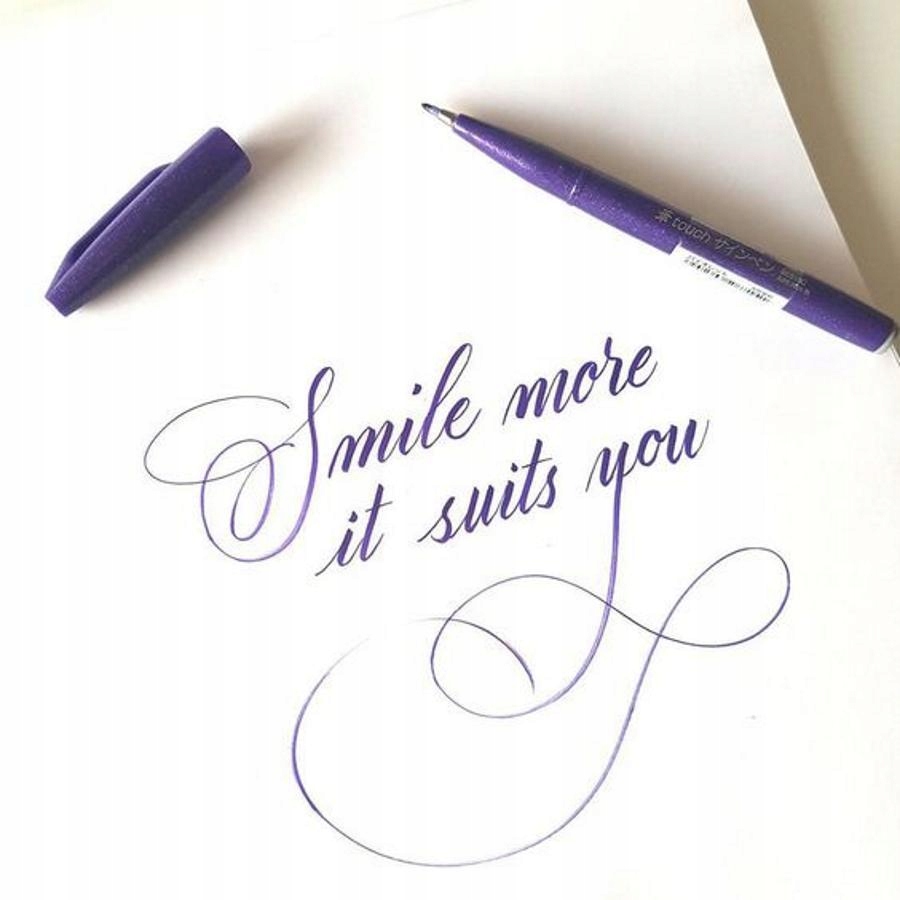 筆touch サインペン
Smile more
it suits you